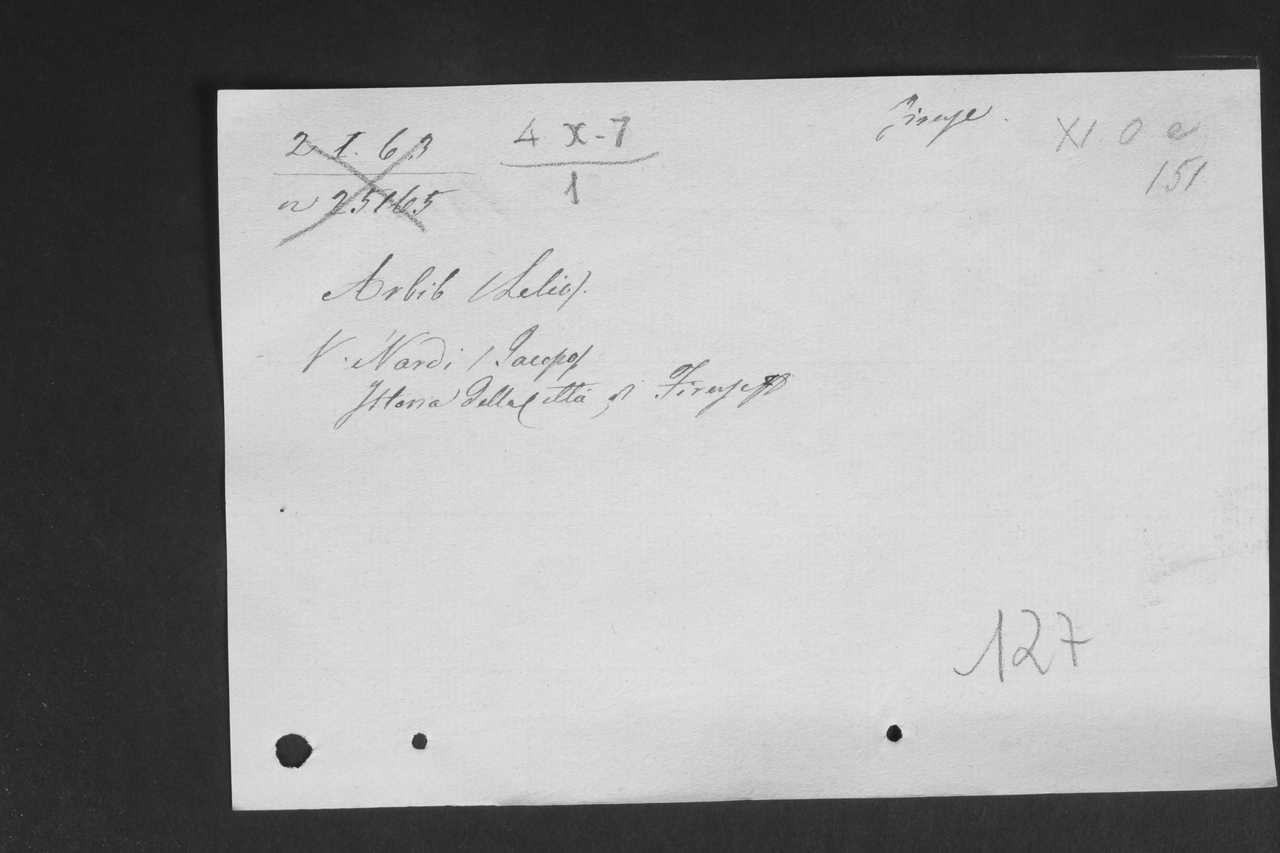 2 I. 63
n 25165
4 X-7
1
Firenze.
XI O e
151
Arbib (Lelio).
V. Nardi (Jacopo)
Istoria della Città di Firenze
127